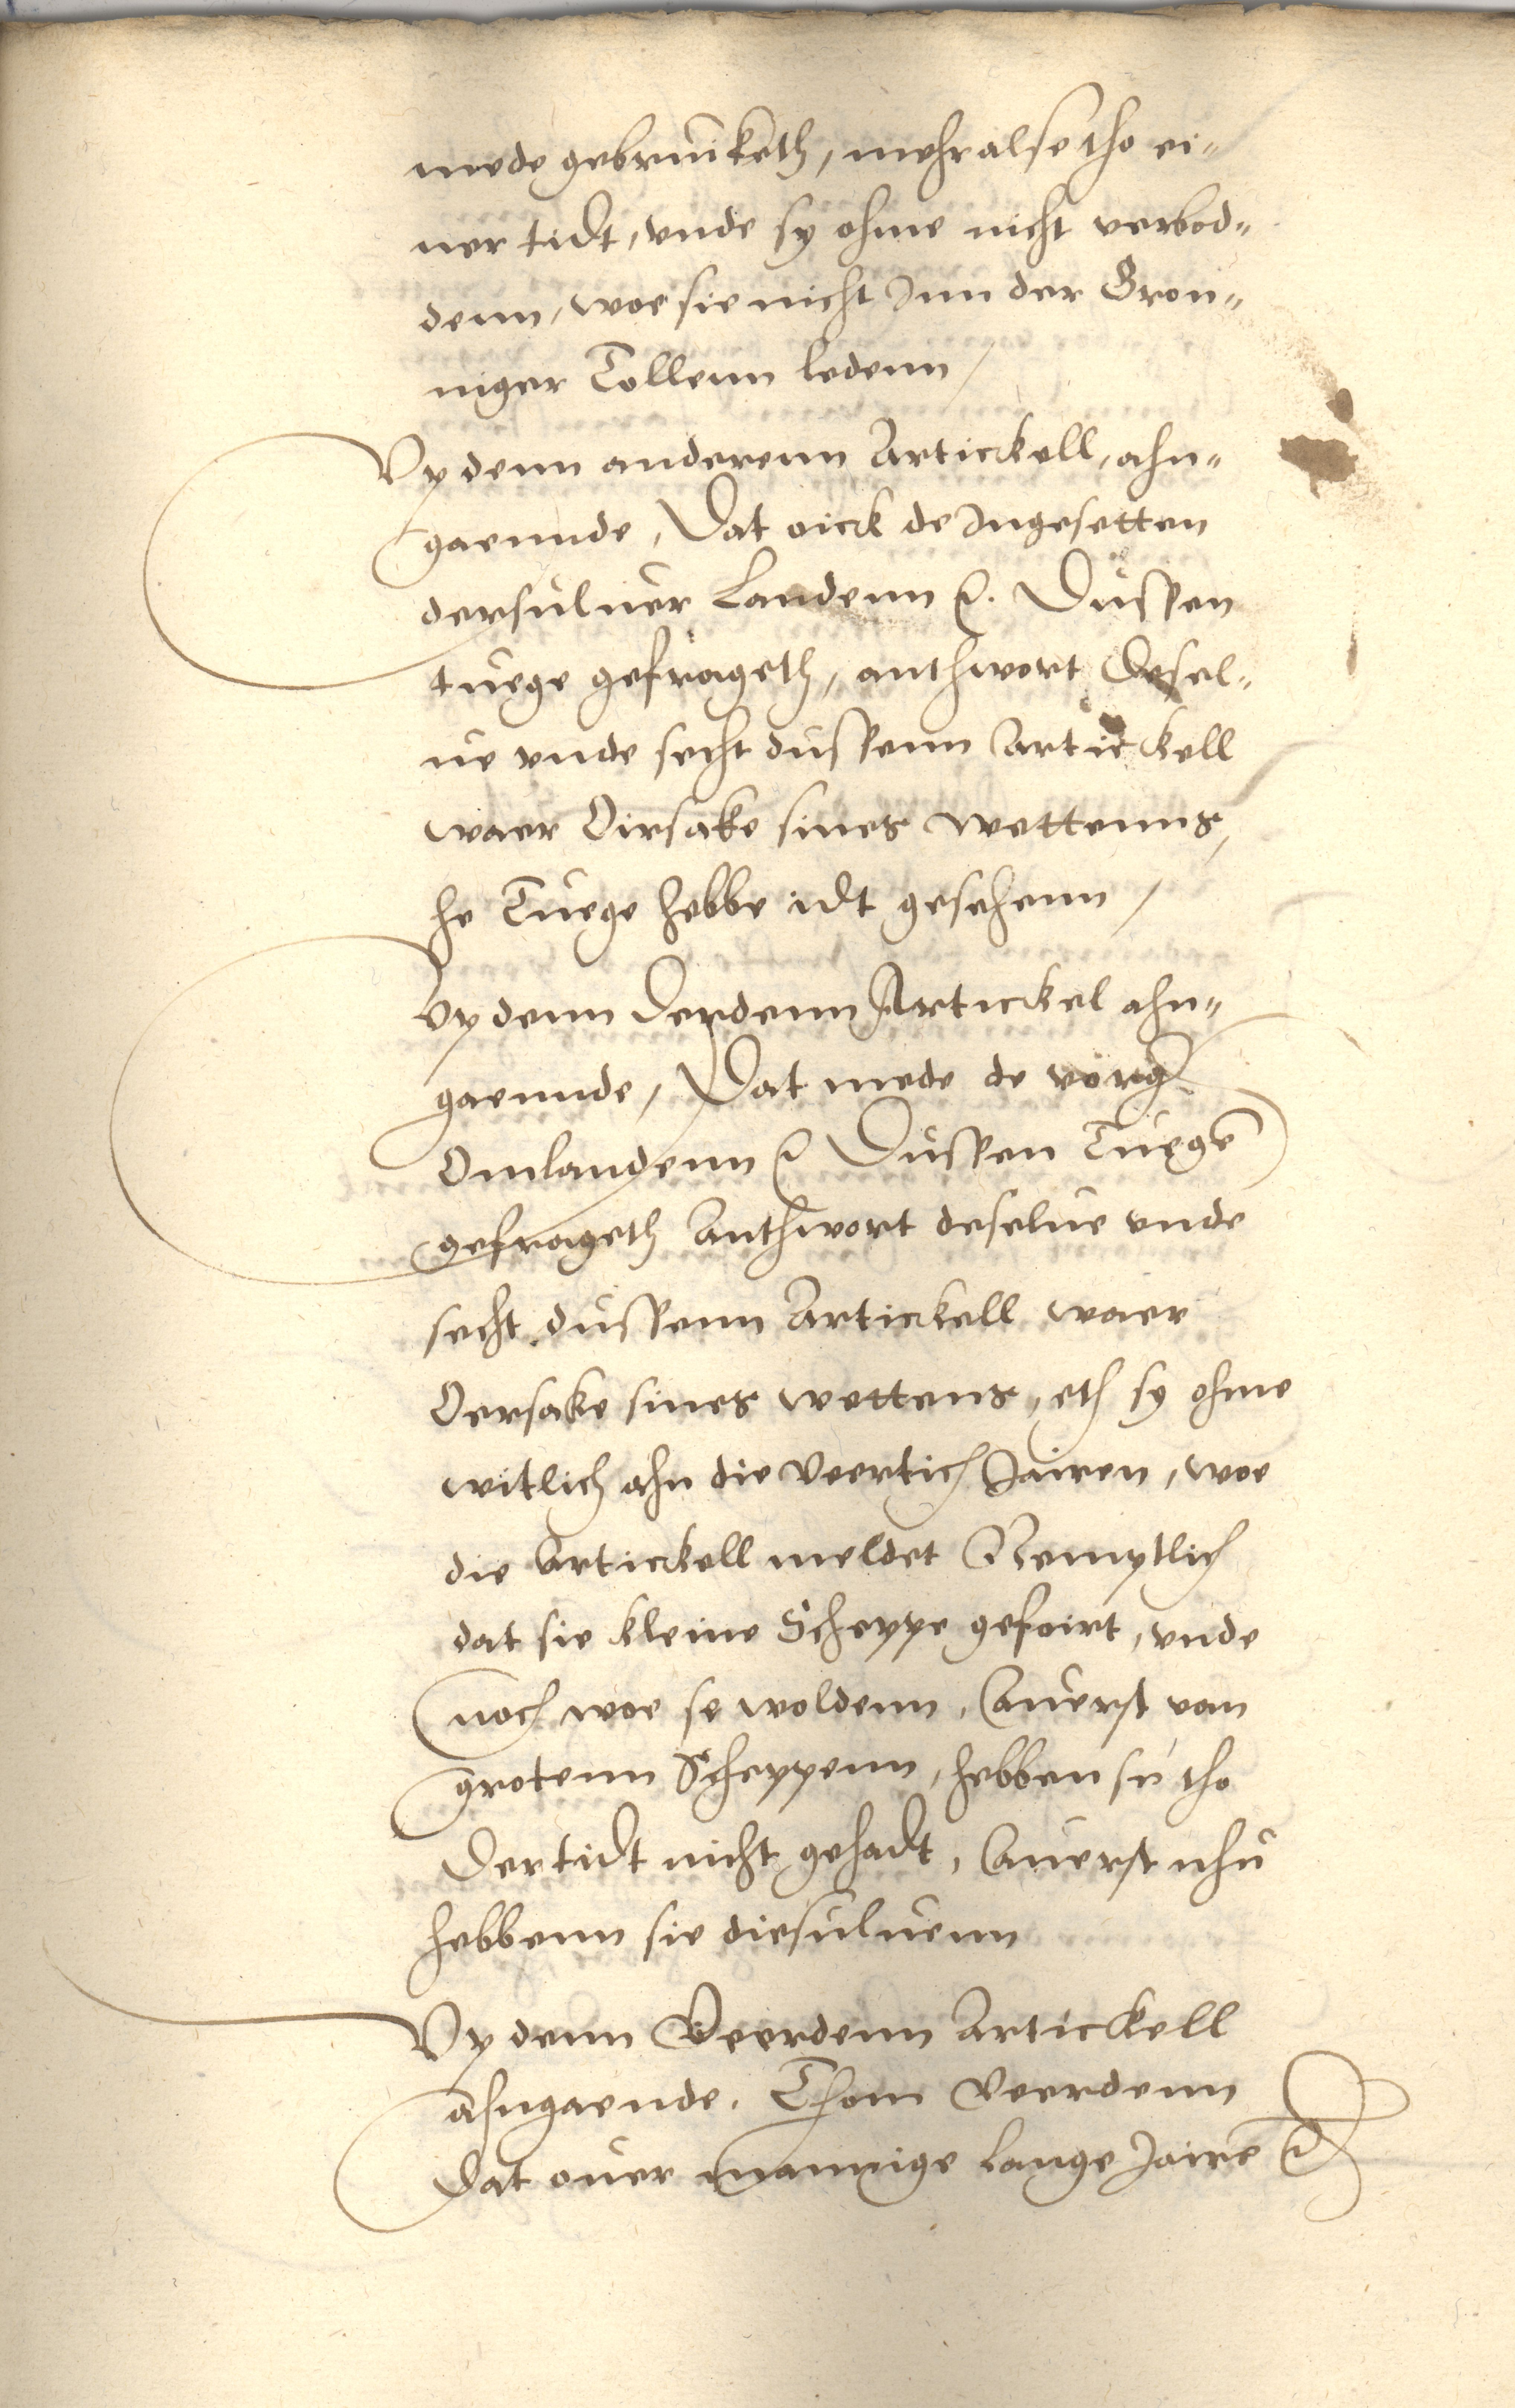 mede gebruiketh, mehr alse tho ei-
ner tidt, vnde sy ohme nicht verbod-
denn, woe sie nicht Inn der Gron-
niger Tollenn ledenn /
Vp denn anderenn Artickell, ahn-
gaennde, Dat oick de Ingesetten
dersuluer Landenn etc. Dussen
tuege gefrageth, anthwort desel-
ue vnde secht dussenn Artickell
waer Oirsake sines wettenns,
he Tuege hebbe idt gesehenn /
Vp denn derdenn Artickel ahn-
gaennde, Dat mede de vorg.
Omlandenn etc. Dussen Tuege
gefrageth Anthwort deselue vnde
secht dussenn Artickell waer
Oersake sines wettens, eth sy ohme
witlich ahn die veertich Jairen, woe
die Artickell meldet Nemptlich
dat sie kleine Scheppe gefoirt, vnde
noch woe se woldenn, Auerst van
grotenn Scheppenn, hebben su tho
der tidt nicht gehadt, Auerst nhu
hebbenn sie diesuluenn
Vp denn Veerdenn Artickell
ahngaende. Thom veerdenn
Dat ouer mannige lange Jaire etc.